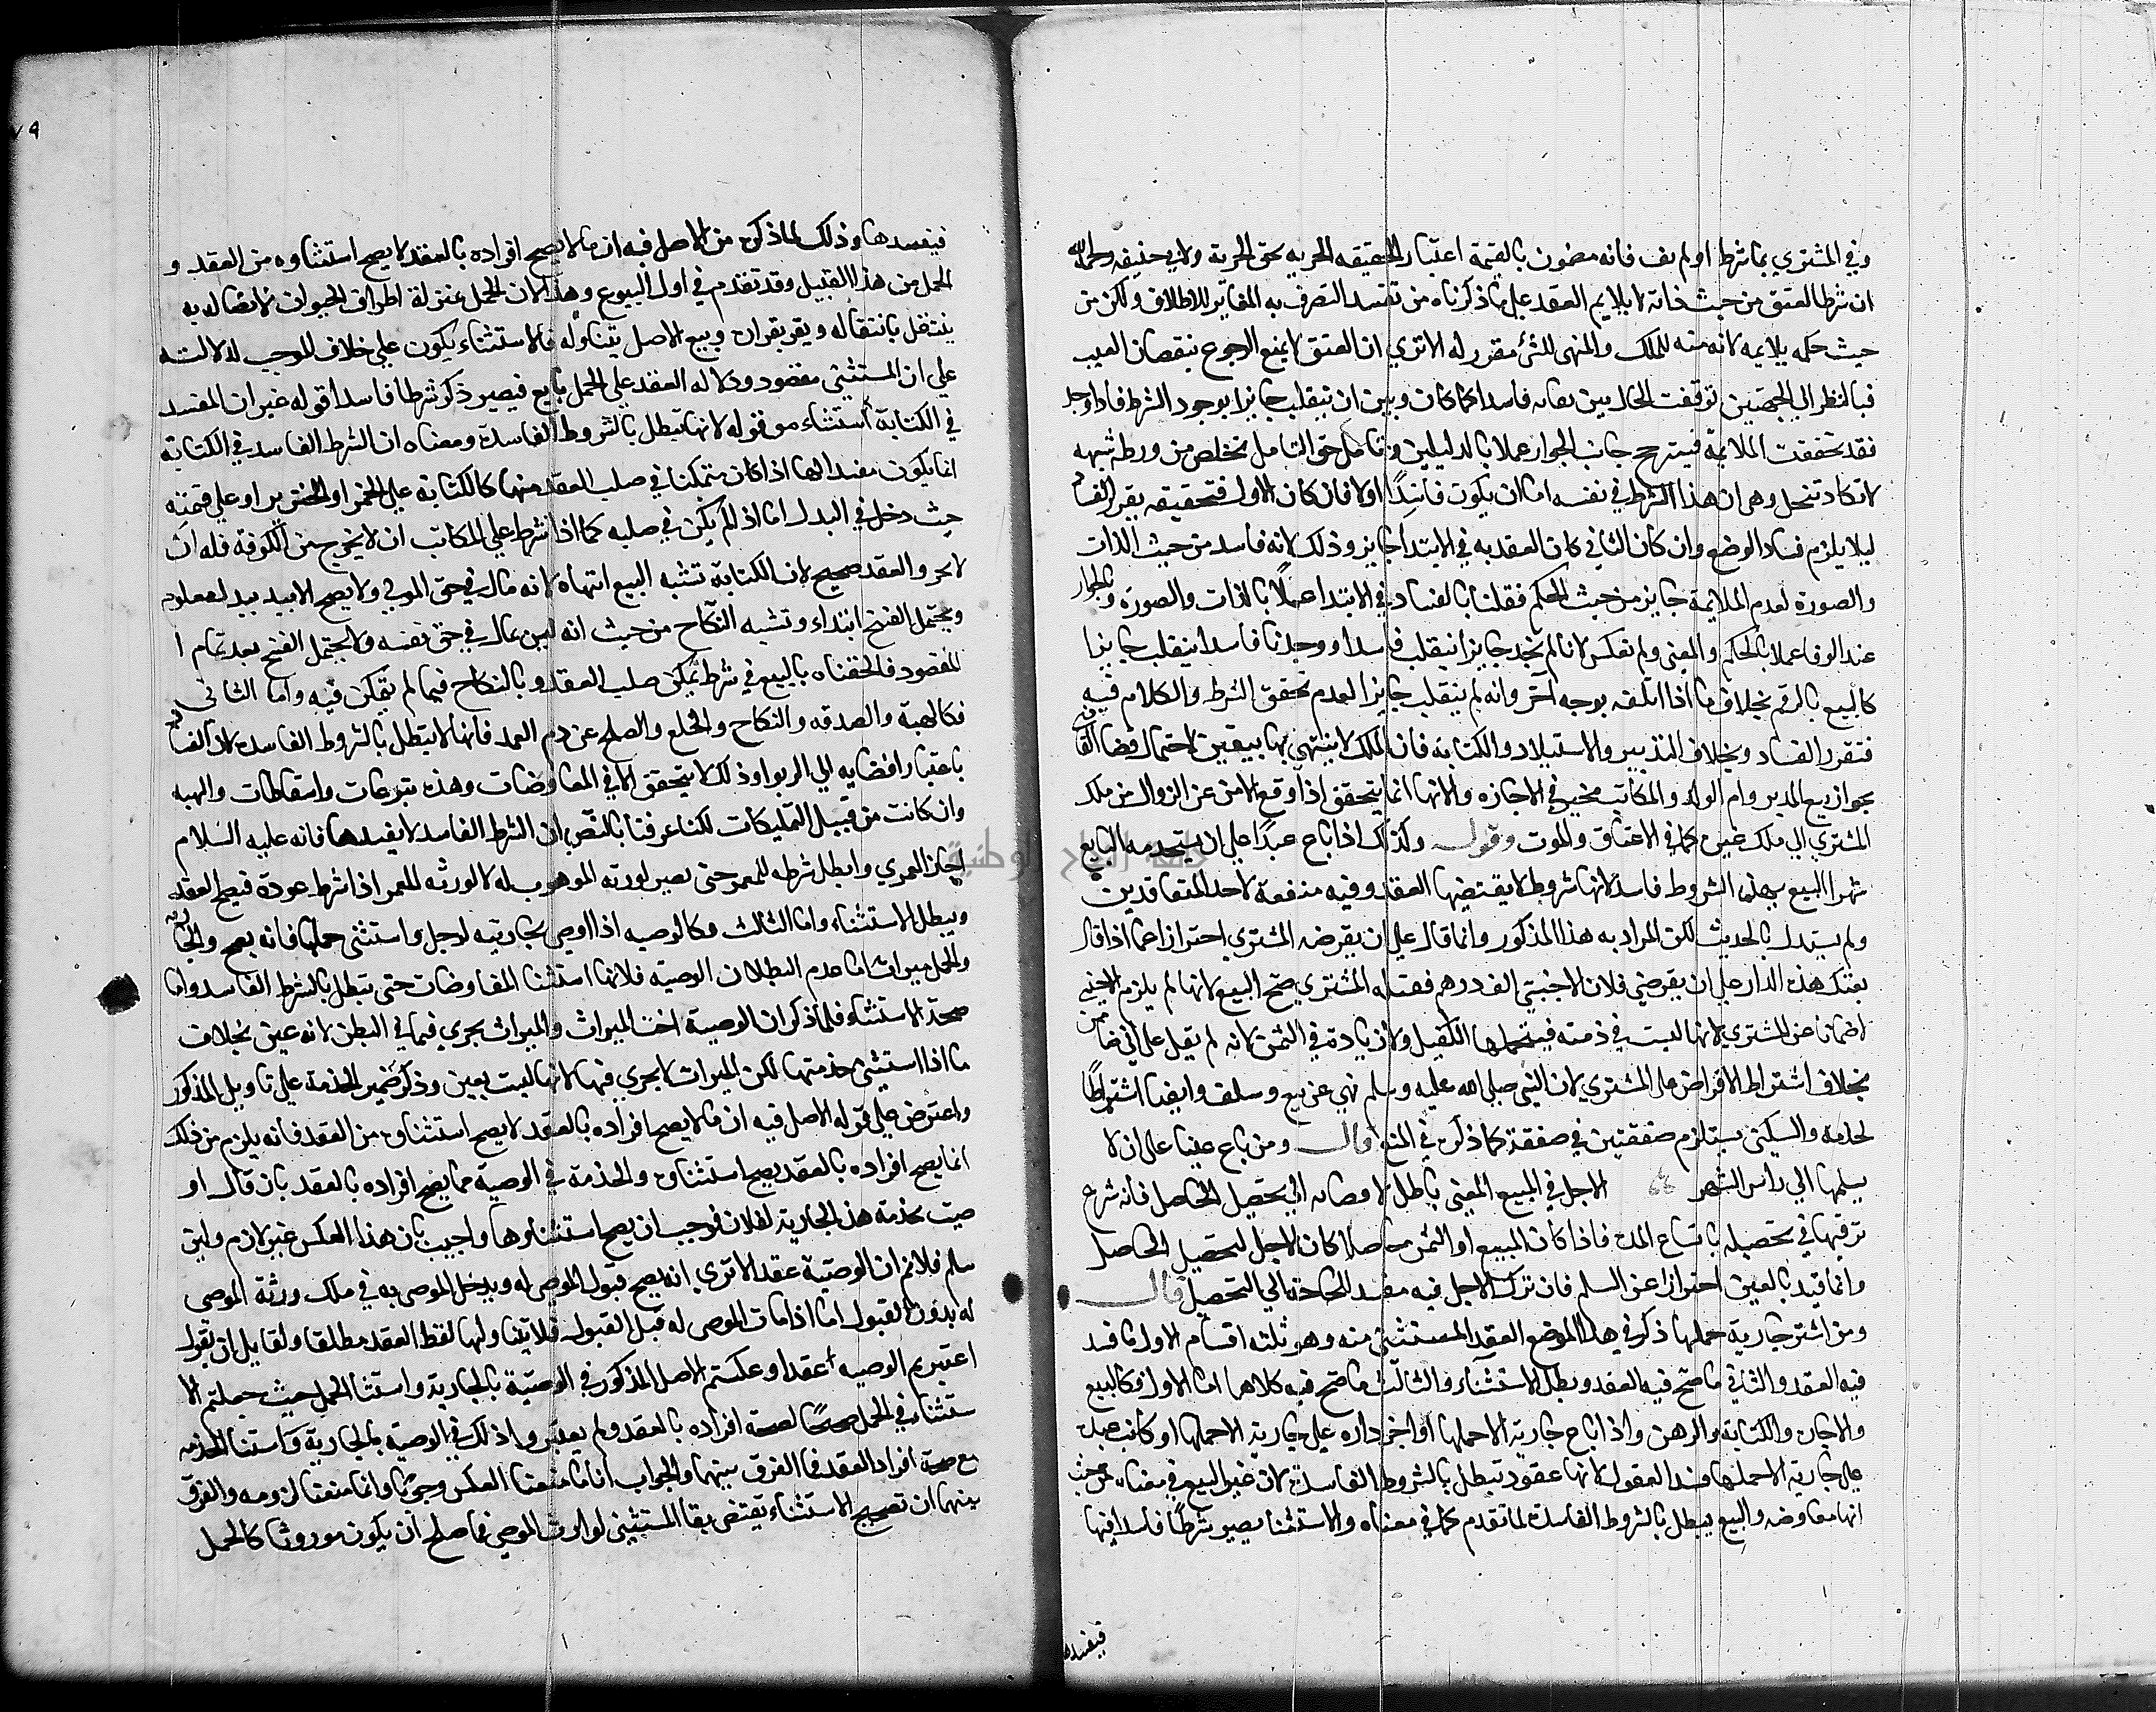 وفي المشتري بما شرط او لم يف فانه مضمون بالقيمة اعتبار الحقيقه الحريه بحق الحرية ولابي حنيفه رحمه الله
ان شرط العتق من حيث ذاته لا يلايم العقد على ما ذكرناه من تقييد التصرف به المغاير للاطلاق ولكن من
حيث حكمه يلايمه لانه منه للملك والمنهى للشئ مقرر له الا تري ان العتق لا يمنع الرجوع بنقصان العيب
فبالنظر الي الجهتين توقفت الحال بين بقاه فاسدا كما كان وبين ان ينقلب جايزا بوجود الشرط فاذا وجد
فقد تحققت الملايمة فيترجح جانب الجواز عملا بالدليلين وتامل حق التامل تخلص من ورطه شبهه
لا تكاد تنحل وهي ان هذا الشرط في نفسه اما ان يكون فاسدًا او لا فان كان الاول فتحقيقه يقرر الفساد
ليلا يلزم فساد الوضع وان كان الثاني كان العقد به في الابتدا جايز وذلك لانه فاسد من حيث الذات
والصورة لعدم الملايمة جايز من حيث الحكم فقلنا بالفساد في الابتدا عملًا بالذات والصورة وبالجواز
عند الوفا عملا بالحكم والمعنى ولم نعكس لانا لم نجد جايزا ينقلب فاسدا ووجدنا فاسدا ينقلب جايزا
كالبيع بالرقم بخلاف ما اذا اتلفه بوجه آخر وانه لم ينقلب جايزا لعدم تحقق الشرط والكلام فيه
فتقرر الفساد وبخلاف التدبير والاستيلاد والكتابه فان الملك لا ينتهي بها بيقين لاحتمال قضا القاضي
بجواز بيع المدبر وام الولد والمكاتب مخير في الاجازه والانها انما يتحقق اذا وقع الامن عن الزوال من ملك
المشتري الي ملك غيره كما في الاعتاق والموت وقوله وكذلك اذا باع عبدًا علي ان يستخدمه البايع
شهرا البيع بهذه الشروط فاسد لانها شروط لا يقتضيها العقد وفيه منفعة لاحد المتعاقدين
ولم يستدل بالحديث لكن المراد به هذا المذكور وانما قال علي ان يقرضه المشتري احترازا عما اذا قال
بعتك هذه الدار علي ان يقرضني فلان الاجنبي الف درهم فقبله المشتري صح البيع لانها لم يلزم الاجنبي
لا ضمانا عن المشتري لانها ليست في ذمته فيتحملها الكفيل ولا زيادة في الثمن لانه لم يقل علي اني ضامن
بخلاف اشتراط الاقراض علي المشتري لان النبي صلي الله عليه وسلم نهي عن بيع وسلف وايضا اشتراط
لخدمة والسكنى يستلزم صفقتين في صفقة كما ذكره في المتن قال ومن باع عينا علي ان لا
يسلمها الي راس الشهر الاجل في المبيع المعيني باطل لافضايه الي تحصيل الحاصل فانه شرع
ترفيها في تحصيله باتساع المدة فاذا كان المبيع او الثمن حاصلا كان الاجل لتحصيل الحاصل
وانما قيد بالعين احترازا عن السلم فان ترك الاجل فيه مفسد للحاجة الي التحصيل قال
ومن اشتر جارية حملها ذكر في هذا الموضع العقد المستثنى منه وهو ثلثه اقسام الاول ما فسد
فيه العقد والثاني ما صح فيه العقد وبطل الاستثناء والثالث ما صح فيه كلاهما اما الاول فكالبيع
والاجارة والكتابة والرهن واذا باع جارية الا حملها او اجر داره علي جارية الا حملها او كاتب عبده
علي جارية الا حملها فسد العقود لانها عقود تبطل بالشروط الفاسدة لان غير البيع في معناه من حيث
انها معاوضه والبيع يبطل بالشروط الفاسدة لما تقدم كما في معناه والاستثنا يصير شرطًا فاسدا فيها
فيفسدها
فيفسدها وذلك لما ذكره من الاصل فيه ان ما لا يصح افراده بالعقد لا يصح استثناوه من العقد و
الحمل من هذا القبيل وقد تقدم في اول البيوع وهذا لان الحمل بمنزلة اطراف الحيوان لاتصاله به
ينتقل بانتقاله ويقر بقراره وبيع الاصل يتناوله فالاستثناء يكون علي خلاف الموجب لدلالته
علي ان المستثنى مقصود ودلاله العقد علي الحمل تابع فيصير ذكر شرطا فاسدا قوله غير ان المفسد
في الكتابة استثناء مو قوله لانها تبطل بالشروط الفاسدة ومعناه ان الشرط الفاسد في الكتابة
انما يكون مفسدا لها اذا كان متمكنا في صلب العقد منها كالكتابة علي الخمر او الخنزير او علي قيمته
حيث دخل في البدل اما اذا لم يكن في صلبه كما اذا شرط علي المكاتب ان لا يخرج من الكوفة فله ان
لا يخرج والعقد صحيح لان الكتابة تشبه البيع انتهاء لانه مال في حق المولي ولا يصح الا ببدل معلوم
ويحتمل الفسخ ابتداء وتشبه النكاح من حيث انه ليس بمال في حق نفسه ولا يحتمل الفسخ بعد تمام ا
لمقصود فالحقناه بالبيع في شرط تمكن صلب العقد وبالنكاح فيما لم يتمكن فيه واما الثاني
فكالهبة والصدقه والنكاح والخلع والصلح عن دم العمد فانها لا تبطل بالشروط الفاسدة لان الفساد فيه
باعتبار افضايه الي الربوا وذلك لا يتحقق الا في المعاوضات وهذه تبرعات واسقاطات والهبه
وان كانت من قبيل التمليكات لكنا عرفنا بالنص ان الشرط الفاسد لا يفسدها فانه عليه السلام
اجاز العمري وابطل شرطه للمعمر حتى يصير لورثة الموهوب له لا لورثه للمعمر اذا شرط عودة فيصح العقد
ويبطل الاستثناء واما الثالث فكالوصيه اذا اوصى بجاريته لرجل واستثنى حملها فانه يصح والجارية
والحمل ميراث اما عدم البطلان الوصيه فلانها استثنا المفاوضات حتى تبطل بالشرط الفاسد واما
صحة الاستثناء فلما ذكر ان الوصية اخت الميراث والميراث يجري فيما في البطن لانه عين بخلاف
ما اذا استثنى خدمتها لكن الميراث لا يجري فيها لانها ليست بعين وذكر ضمير الخدمة علي تاويل المذكور
واعترض علي قوله الاصل فيه ان ما لا يصح افراده بالعقد لا يصح استثناوه من العقد فانه يلزم من ذلك
انما يصح افراده بالعقد يصح استثناوه والخدمة في الوصية مما يصح افراده بالعقد بان قال او
صيت بخدمة هذه الجارية لفلان فوجب ان يصح استثناوها واجيب بان هذا العكس غير لازم ولين
سلم فلا نم ان الوصية عقد الا تري انه يصح قبول الموصى له ويدخل الموصى به في ملك ورثة الموصى
له بدون القبول اما اذا مات الموصى له قبل القبول فلا يتناولها لفظ العقد مطلقا ولقايل ان يقول
اعتبرتم الوصيه عقدا وعكستم الاصل المذكور في الوصية بالجارية واستثنا الحمل حيث جعلتم الا
ستثناء في الحمل صحيحًا لصحة افراده بالعقد ولم يعتبروا ذلك في الوصيه بالجارية واستثنا الخدمه
مع صحة افراد العقد فما الفرق بينهما والجواب انا ما منعنا العكس وجوبا وانما منعنا لزومه والفرق
بينهما ان تصحيح الاستثناء يقتضي بقا المستثنى لوارث الموصي فما صلح ان يكون موروثا كالحمل